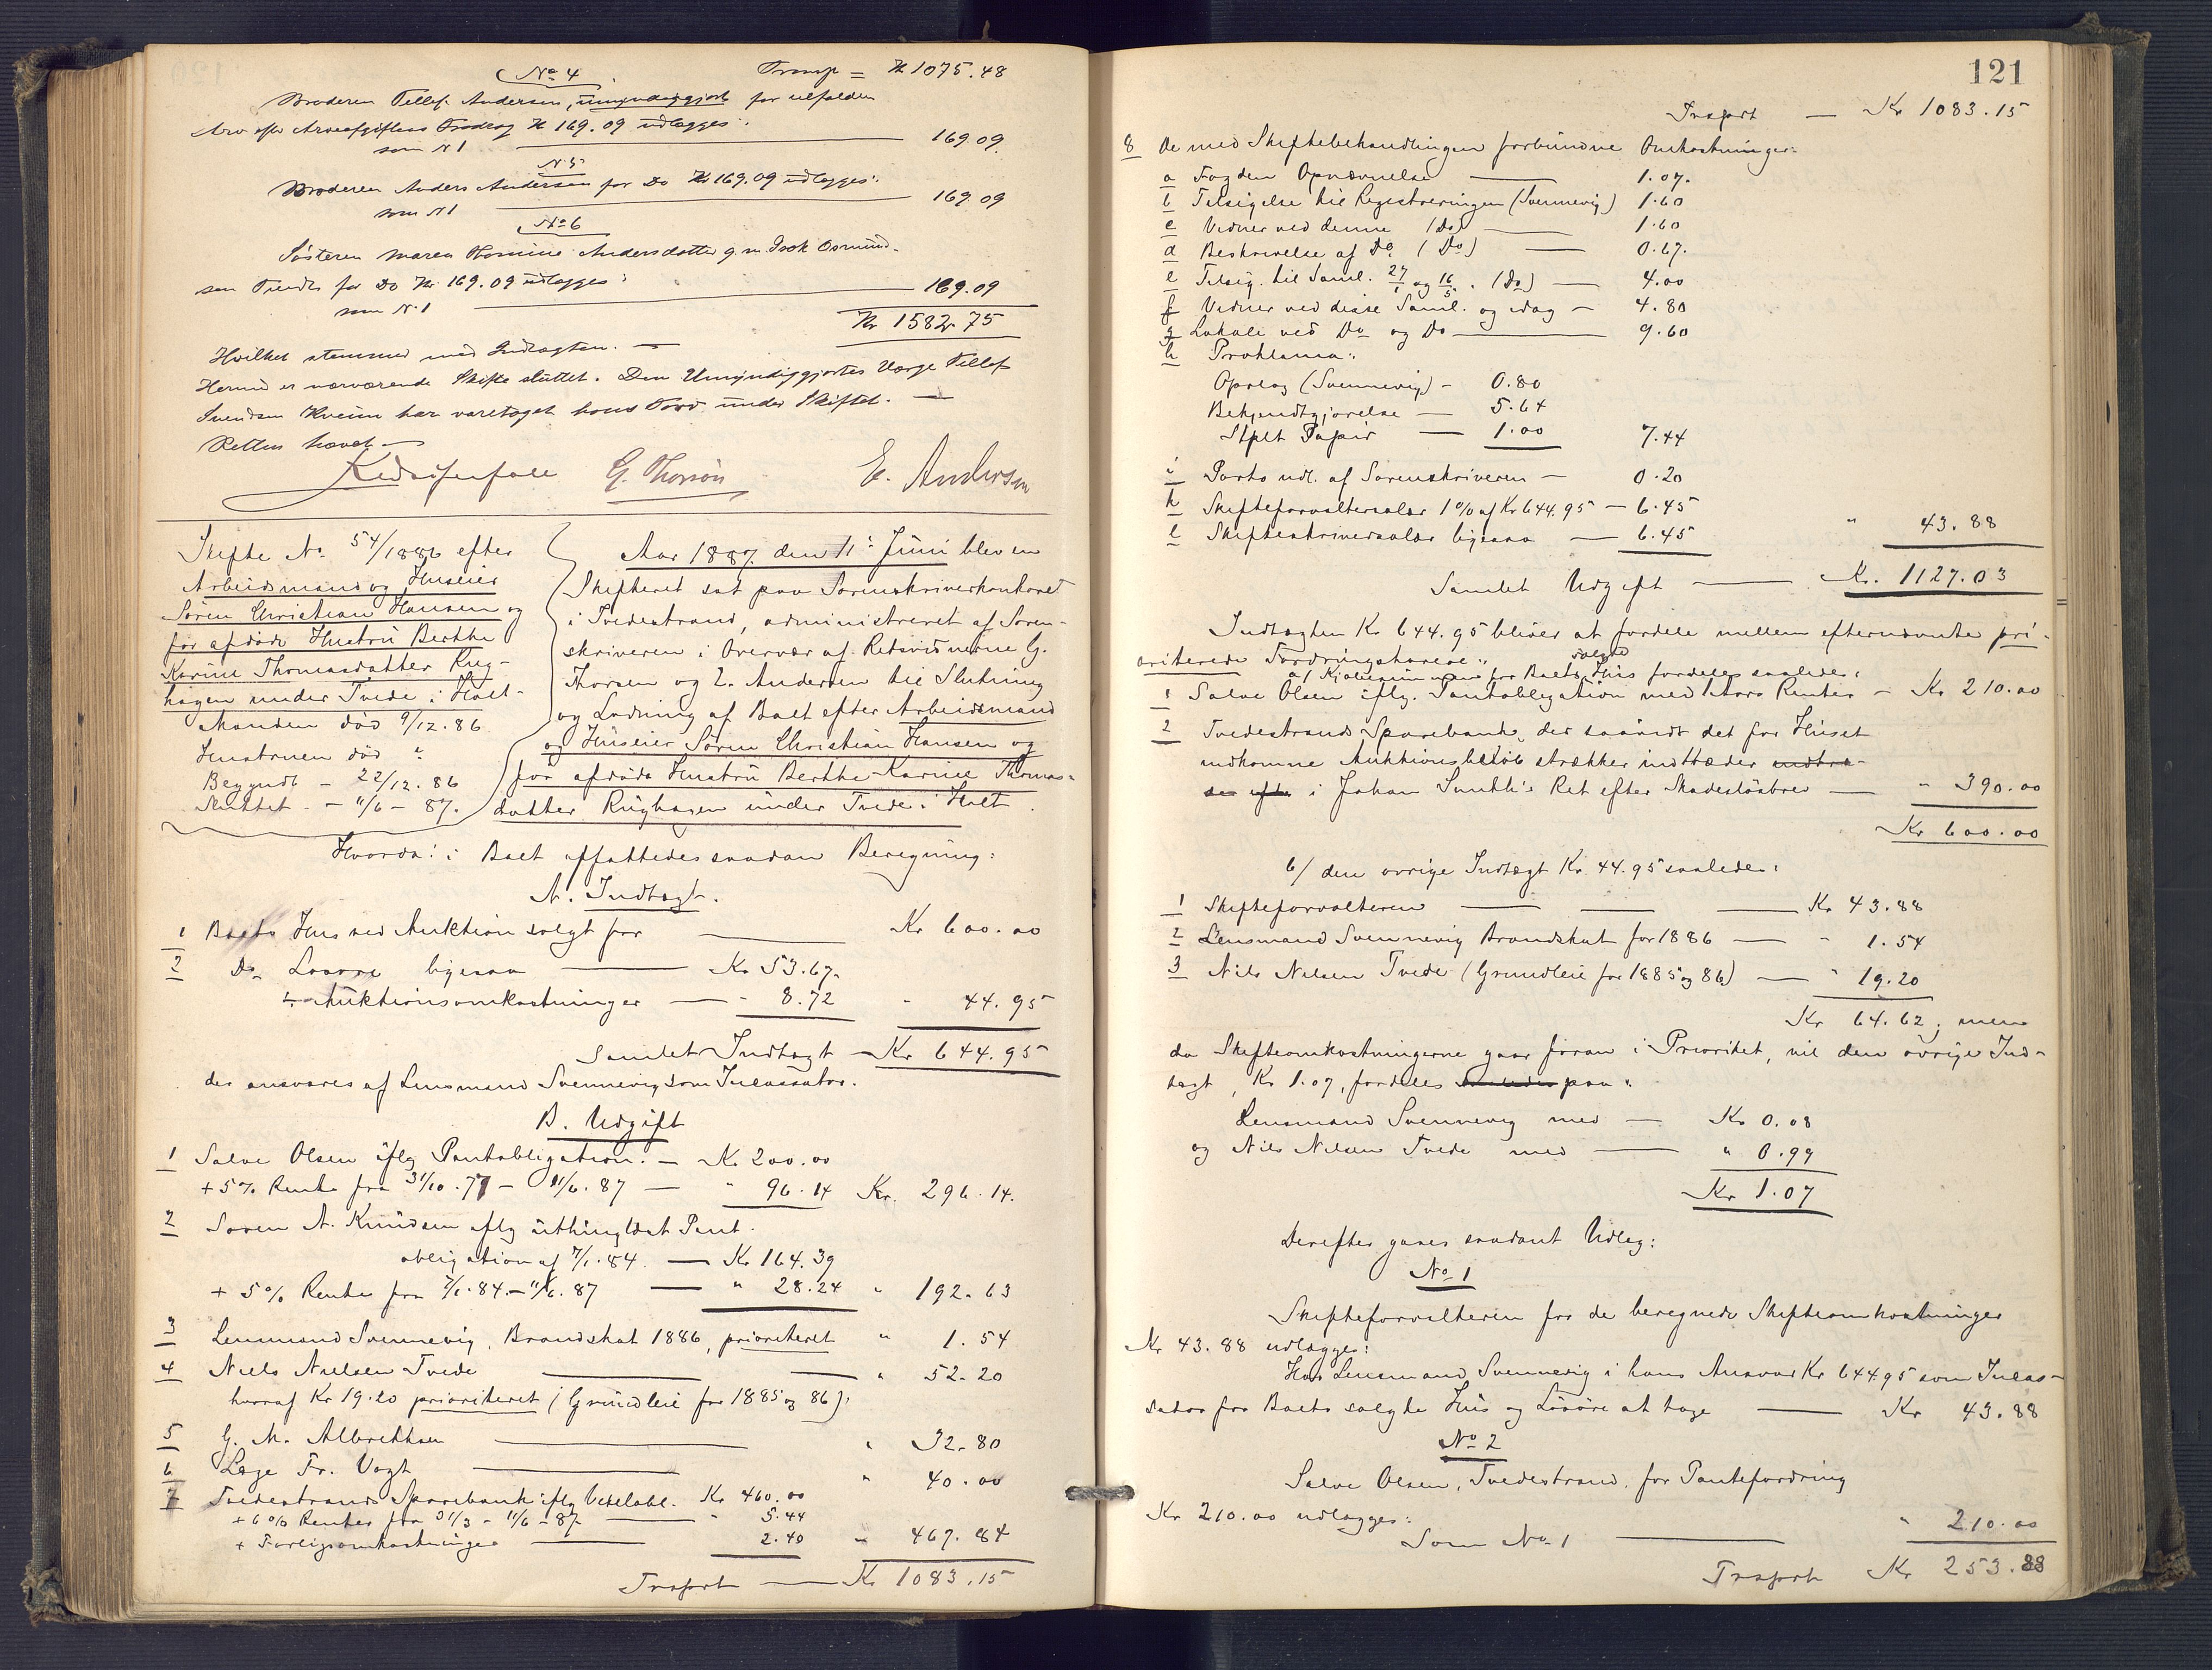 No 4 Transp = Kr 1075.48
Broderen Tellef Andersen, umyndiggjort for tilfalden
Arv efter Arveafgiftens Fradrag Kr 169.09 udlægges:
som N 1 169.09
N 5
Broderen Anders Andersen for Do Kr 169.09 udlægges:
som N 1 169.09
No 6
Søsteren Maren Andersdatter g. m. Isak Osmund-
sen for Do Kr. 169.09 udlægges:
som N. 1 169.09
Kr 1582.75
Hvilket stemmer med Indtægten. —
Hermed er nærværende Skifte sluttet. Den Umyndiggjortes Værge Tellef
Svendsen Kveim har varetaget hans Tarv under Skiftet. —
Retten hævet —
G. Thorsen E. Andersen
Skifte No 54/1886 efter
Arbeidsmand og Huseier
Søren Christian Hansen og
før afdøde Hustru Berthe
Karine Thomasdatter Rug-
hagen under Tvede i Holt.
Manden død 9/12.86
Hustruen død "
Begyndt - 22/12.86
Sluttet - 11/6 - 87.
Aar 1887 den 11' Juni blev en
Skifteret sat paa Sorenskriverkontoret
i Tvedestrand, administreret af Soren-
skriveren i Overvær af Retsvidnerne G.
Thorsen og E. Andersen til Slutning
og Lodning af Boet efter Arbeidsmand
og Huseier Søren Christian Hansen og
før afdøde Hustru Berthe Karine Thomas-
datter Rughagen under Tvede i Holt.
Hvorda: i Boet affattedes saadan Beregning:
A. Indtægt.
1 Boets Hus ved Auktion solgt for Kr 600.00
2 Do Løsøre ligesaa Kr 53.67
÷ Auktionsomkostninger " 8.72 " 44.95
Samlet Indtægt — Kr 644.95
der ansvares af Lensmand Svennevig som Incassator.
B. Udgift
1 Salve Olsen iflg Pantobligation. — Kr 200.00
+ 5% Rente fra 31/10.77 - 11/6.87 — " 96.14 Kr. 296.14.
2 Søren A. Knudsen iflg uthinglæst Pant
obligation af 7/1.84. — Kr 164.39
+ 5% Rente fra 7/1.84 - 11/6.87 — " 28.24 " 192.63
3 Lensmand Svennevig, Brandskat 1886, prioriteret " 1.54
4 Niels Nielsen Tvede " 52.20
hvoraf Kr 19.20 prioriteret (Grundleie for 1885 og 86).
5 G. M. Albrethsen " 32.80
6 Læge Fr. Vogt " 40.00
7 Tvedestrands Sparebank iflg Vexelobl. Kr 460.00
+ 6% Renter fra 31/3 - 11/6 - 87 " 5.44
+ Forligsomkostninger 2.40 " 467.84
Trsport — Kr 1083.15
121
Trsport — Kr 1083.15
8 De med Skiftebehandlingen forbundne Omkostninger:
a Fogdens Opnævnelse 1.07.
b Tilsigelse til Registreringen (Svennevig) 1.60
c Vidner ved denne (Do) 1.60
d Beskrivelse af Do (Do) 0.67.
e Tilsig. til Saml. 27/1 og 16/5. (Do) — 4.00
f Vidner ved disse Saml. og idag — 4.80
g Lokale ved Do og Do 9.60
h Proklama:
Opslag (Svennevig) - 0.80
Bekjendtgjørelse — 5.64
Stplt Papir — 1.00 7.44
i Porto udl. af Sorenskriveren — 0.20
k Skifteforvaltersalær 1% af Kr 644.95 — 6.45
l Skifteskriversalær ligesaa — 6.45 " 43.88
Samlet Udgift Kr. 1127.03
Indtægten Kr 644.95 bliver at fordele mellem efternævnte pri-
oriterede Fordringshavere:
a/ Kjøbesummen for Boets solgte Hus fordeles saaledes:
1 Salve Olsen iflg. Pantobligation med Aars Renter — Kr 210.00
2 Tvedestrands Sparebank, der saavidt det for Huset
indkomne Auktionsbeløb strækker indtræder indtræ-
der efter i Johan Ret efter Skadesløsbrev — " 390.00
Kr 600.00
b/ den øvrige Indtægt Kr. 44.95 saaledes:
1 Skifteforvalteren Kr 43.88
2 Lensmand Svennevig Brandskat for 1886 — " 1.54
3 Nils Nilsen Tvede (Grundleie for 1885 og 86) — " 19.20
Kr 64.62, men
da Skifteomkostningerne gaar foran i Prioritet, vil den øvrige Ind-
tægt, Kr 1.07, fordeles paa:
Lensmand Svennevig med — Kr 0.08
og Nils Nilsen Tvede med " 0.99
Kr 1.07
Derefter gjøres saadant Udlæg:
No 1
Skifteforvalteren for de beregnede Skifteomkostninger
Kr 43.88 udlægges:
Hos Lensmand Svennevig i hans Ansvar Kr 644.95 som Incas-
sator for Boets solgte Hus og Løsøre at tage Kr 43.88
No 2
Salve Olsen, Tvedestrand, for Pantefordring
Kr 210.00 udlægges:
Som No 1 " 210.00
Trsport Kr 253.88